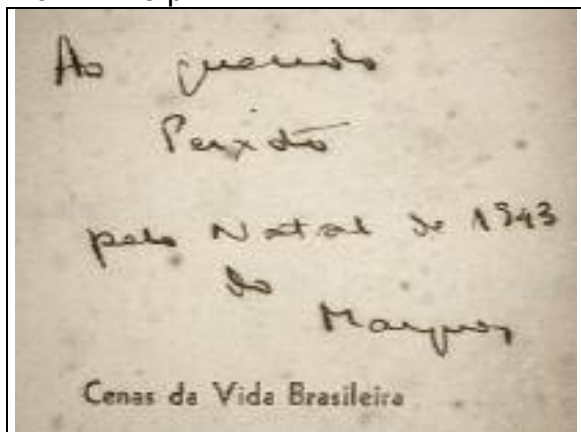 Ao querido
Peixoto
pelo Natal de 1943
do
Marques
Cenas da Vida Brasileira